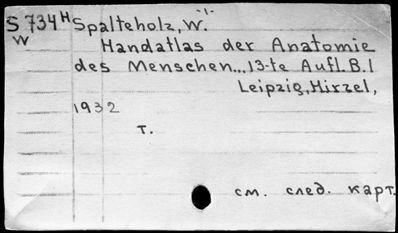 S 734 H Spalteholz, W.
W Handatlas der Anatomie
des Menschen... 13-te Aufl. B. I
Leipzig, Hirzel,
1932
т.
см. след. карт.